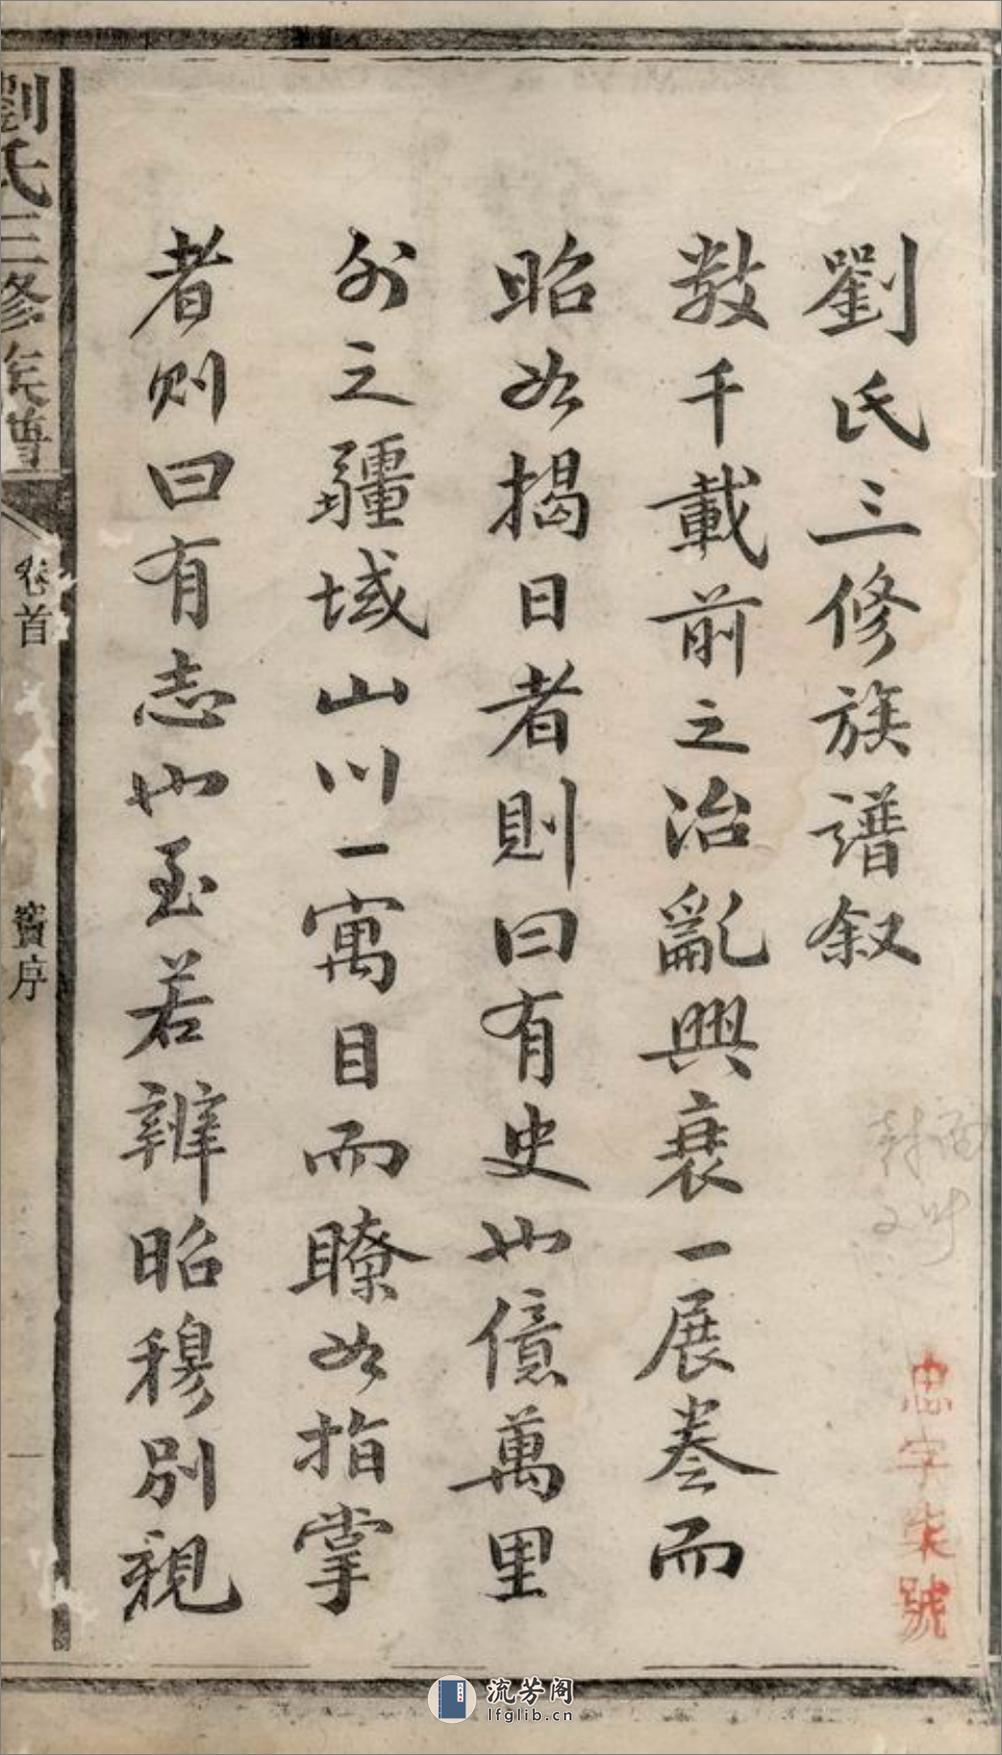 劉氏三修族譜叙
数千載前之治亂興衰一展卷而
昭如揭日者則曰有史也億萬里
外之疆域山川一寓目而瞭如指掌
者则曰有志也至若辨昭穆别親
劉氏三修族譜
卷首
賓序
一
忠字 號
流芳阁
lfglib.cn